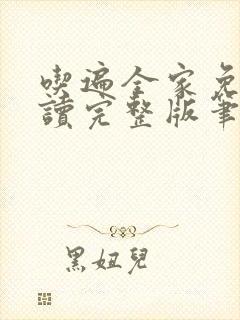 喫遍全家免
讀完整版筆
黑妞兒